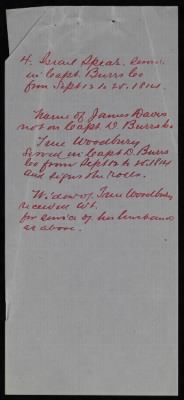 4. Israel Spear. served
in Capt. Burrs Co
from Sept 12 to 25. 1814

Name of James Davis
not on Capt D. Burrs Co.
True Woodbury
served in Capt. D. Burrs
Co from Sept 12 to 25. 1814
and signs the rolls.
Widow of True Woodbury
received Wt.
for service of her husband
as above.